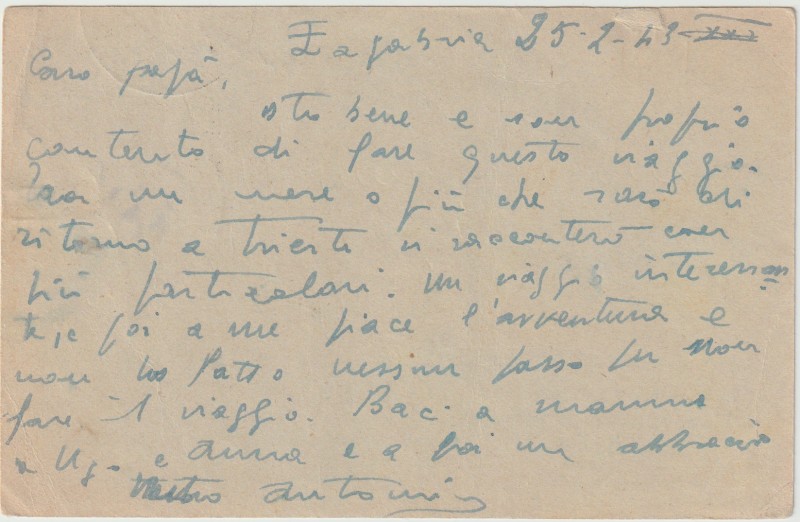 Zagabria 25-2-43 XXI
Caro papà,
sto bene e son proprio
contento di fare questo viaggio.
Fra un mese o più che sarò di
ritorno a Trieste vi racconterò con
più particolari. Un viaggio interessan
te, e poi a me piace l'avventura e
non ho fatto nessun passo per non
fare il viaggio. Baci a mamma
a Ugo e Anna e a voi un abbraccio
Antonio